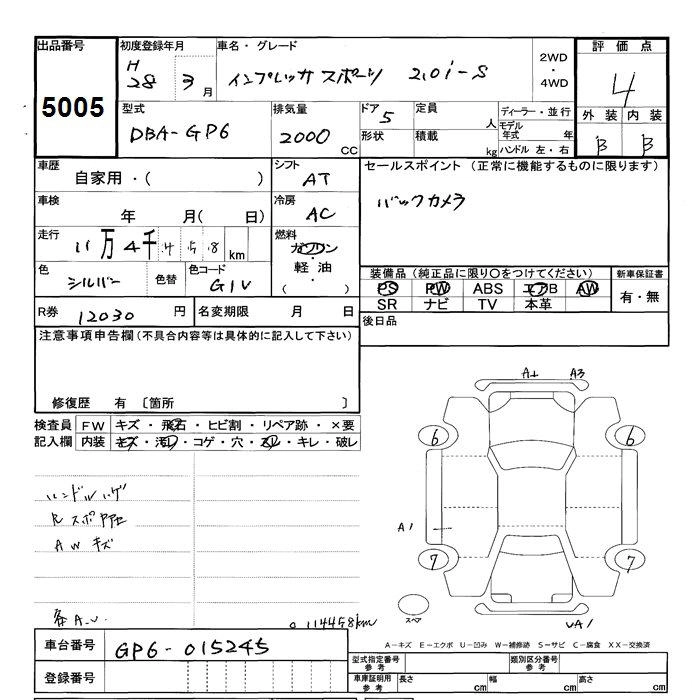 出品番号
5005
初度登録年月
H 28 3月
車名・グレード
インプレッサ スポーツ 2.0i-S
2WD
・
4WD
評価点
4
外装 内装
B B
型式
DBA-GP6
排気量
2000 CC
ドア 5
形状
定員 人
積載 kg
ディーラー・並行
モデル年式 年
ハンドル 左・右
車歴
自家用・( )
シフト
AT
セールスポイント (正常に機能するものに限ります)
バックカメラ
車検
年 月( 日)
冷房
AC
走行
11万4千458km
燃料
ガソリン
・
軽油
( )
色
シルバー
色替
色コード
G1V
装備品(純正品に限り〇をつけてください)
PS PW ABS エアB AW
SR ナビ TV 本革
新車保証書
有・無
R券 12030 円
名変期限 月 日
後日品
注意事項申告欄(不具合内容等は具体的に記入して下さい)
修復歴 有 〔箇所 〕
検査員
記入欄
FW キズ・飛石・ヒビ割・リペア跡・×要
内装 キズ・汚レ・コゲ・穴・スレ・キレ・破レ
ハンドルハゲ
AWキズ
A1 A3
6 6
A1
7 7
スペア
A1
114458km
車台番号 GP6-015245
登録番号
A−キズ E−エクボ U−凹み W−補修跡 S−サビ C−腐食 XX−交換済
型式指定番号 参考
類別区分番号 参考
車庫証明用 参考
長さ cm 幅 cm 高さ cm